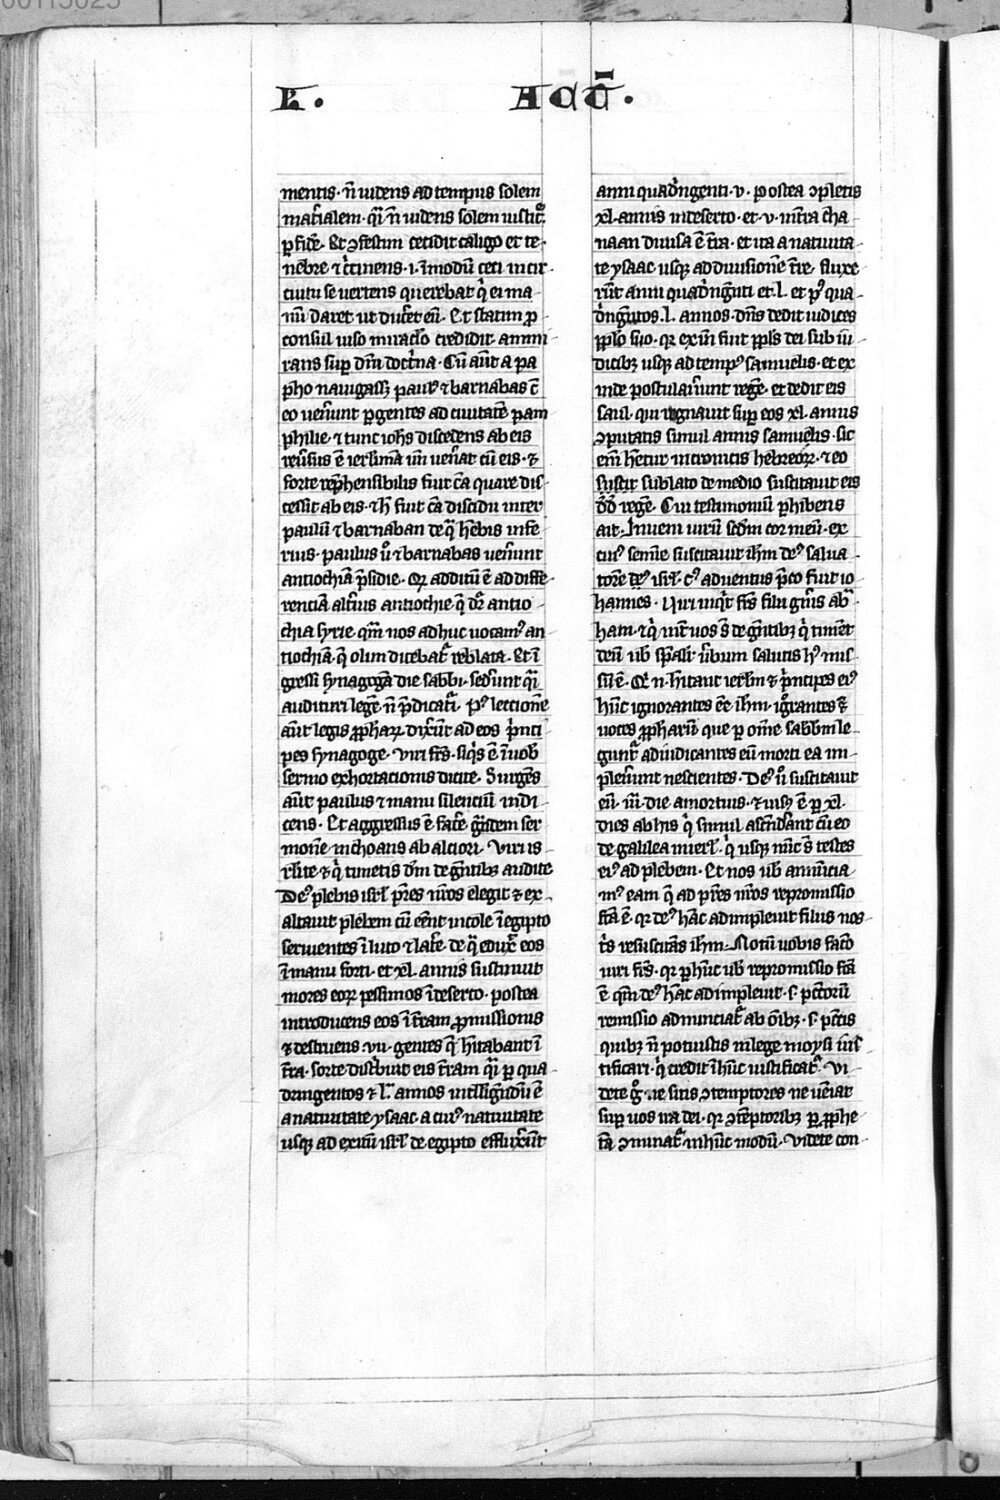 00113025
L. ACT̄.
mentis· n̄ uidens ad tempus solem
mat̄ialem· q̄i n̄ uidens solem iustic̄
ꝑfidē· Et ꝯfestim cecidit caligo et te-
nebre ⁊ c̄tinens· i· ī modū ceci in cir-
cuitu se uertens querebat q̄ ei ma-
nū daret ut ducēt eū· Et statim ꝓ
consul uiso miraclō credidit ammi-
rans suꝑ dn̄i doctⁱna· Cū aūt a pa
pho nauigass; paulꝰ ⁊ barnabas
eo uen̄unt ꝑgentes ad ciuitatē pam
philie· ⁊ tunc ioh̄s discedens ab eis
reūsus ē ier̄limā un̄ uen̄at cū eis· ⁊
forte rep̄hensibilis fuit cā quare dis-
cessit ab eis· ⁊ h̄ fuit cā discidii inter
paulū ⁊ barnaban de q̄ h̄ebis infe-
rius· paulus u̾ ⁊ barnabas uen̄unt
antiochiā p̄sidie· Qꝺ additū ē ad diffe-
renciā alt̄ius antiochie q̄ dr̄ antio-
chia syrie qm̄ nos adhuc uocamꝰ an
tiochiā· q̄ olim dicebat̄ reblata· Et ī
gressi synagogā die sabbi· sed̄unt q̄i
audituri legē n̄ p̄dicat̄i· Pꝰ lectionē
aūt legis ꝓphaꝝ dixūt ad eos p̄nci-
pes synagoge· Viri fr̄s· siq̄s ē ī uob̄
sermo exhortacionis dicite· Surgēs
aūt paulus ⁊ manu silenciū indi-
cens· Et aggressus ē fac̄e g̃ndem ser
monē inchoans ab alciori· Viri is-
rl̄ite ⁊ q̄ timetis dm̄ de gn̄tibꝫ audite
Deꝰ plebis isrl̄ pr̄es nr̄os elegit ⁊ ex-
altauit plebem cū eēnt incole ī egipto
seruientes ī luto ⁊ lat̄e· de q̄ edux̄ eos
ī manu forti· et xl· annis sustinuit
mores eoꝝ pessimos ī deserto· postea
introducens eos ī tr̄am ꝓmissionis
⁊ destruens· vii· gentes q̄ h̄itabant ī
tr̄a· sorte distⁱbuit eis tr̄am q̄i ꝑ qua
dringentos ⁊ l· annos intellign̄dū ē
a natiuitate ysaac· a cuiꝰ natiuitate
usqꝫ ad exitū isrl̄ de egipto effluxūt
anni quad̾ngenti· v· postea ꝯpletis
xl· annis in deserto· et· v· intra cha-
naan diuisa ē tr̄a· et ita a natiuita-
te ysaac usqꝫ ad diuisionē tr̄e· fluxe-
rūt anni quad̾ngn̄ti et· l· et pꝰ qua-
d̾ngn̄tos· l· annos· dn̄s dedit iudices
pplō suo· qꝛ ex iu̅ fuit ppl̄s dei sub iu-
dicibꝫ usqꝫ ad tempꝰ samuelis· et ex
inde postulau̅unt regē· et dedit eis
saul· qui regnauit suꝑ eos xl· annis
ꝯputatis simul annis samuelis· sic
em̄ h̄etur in cronicis hebreoꝝ· ⁊ eo
sublato de medio suscitauit eis
d̄d̄ regē· Cui testimoniū ꝑhibens
ait· Inueni uirū scd̄m cor meū· ex
cuiꝰ semīe suscitauit ih̄m deꝰ salua-
torē isrl̄· cꝰ aduentus p̄co fuit io-
hannes· Viri inq̄t fr̄s filii gn̄is ab̄-
ham· ⁊ q̄ int̄ uos s̄t de gn̄tibꝫ q̄ timēt
deū ub̄ sp̄ali· ūbrum salutis hꝰ mis-
sū ē· Qꝺ n̄ h̄itant ier̄lm ⁊ p̄ncipes eiꝰ
hūc ignorantes eē ih̄m· igⁿorantes ⁊
uoces ꝓpharū que ꝑ om̄e sabbm̄ le-
gunt̄ adiudicantes eū morti ea im-
pleu̅unt nescientes· Deꝰ u̾ suscitauit
eū· iii· die a mortuis· ⁊ uisꝫ ē ꝑ xl·
dies ab his q̄ simul ascend̾ant cū eo
de galilea in ierl̄· q̄ usqꝫ nūc s̄t testes
eiꝰ ad plebem· Et nos ub̄ annūcia-
mꝰ eam q̄ ad pr̄es nr̄os repromissio
fc̄a ē· qꝛ deꝰ h̄ac adimpleuit filiis nos-
tr̄s resuscitās ih̄m· Notū uobis faco
uiri fr̄s· qꝛ ꝑ hūc ub̄ repromissio fc̄a
ē qm̄ deꝰ h̄ac adimpleuit· s· pcc̄orū
remissio adnunciat̄ ab oi̅bꝫ· s· pcc̄is
quibꝫ n̄ potuistis in lege moysi ius-
tificari· q̄ credit ī hūc iustificat̄· Vi-
dete gᵒ· ne sitis ꝯtemptores ne ueniat
suꝑ uos ira dei· qꝛ ꝯtēptoribꝫ ꝑ ꝓphe-
tā ꝯminat̄ in hūc modū· Videte con-